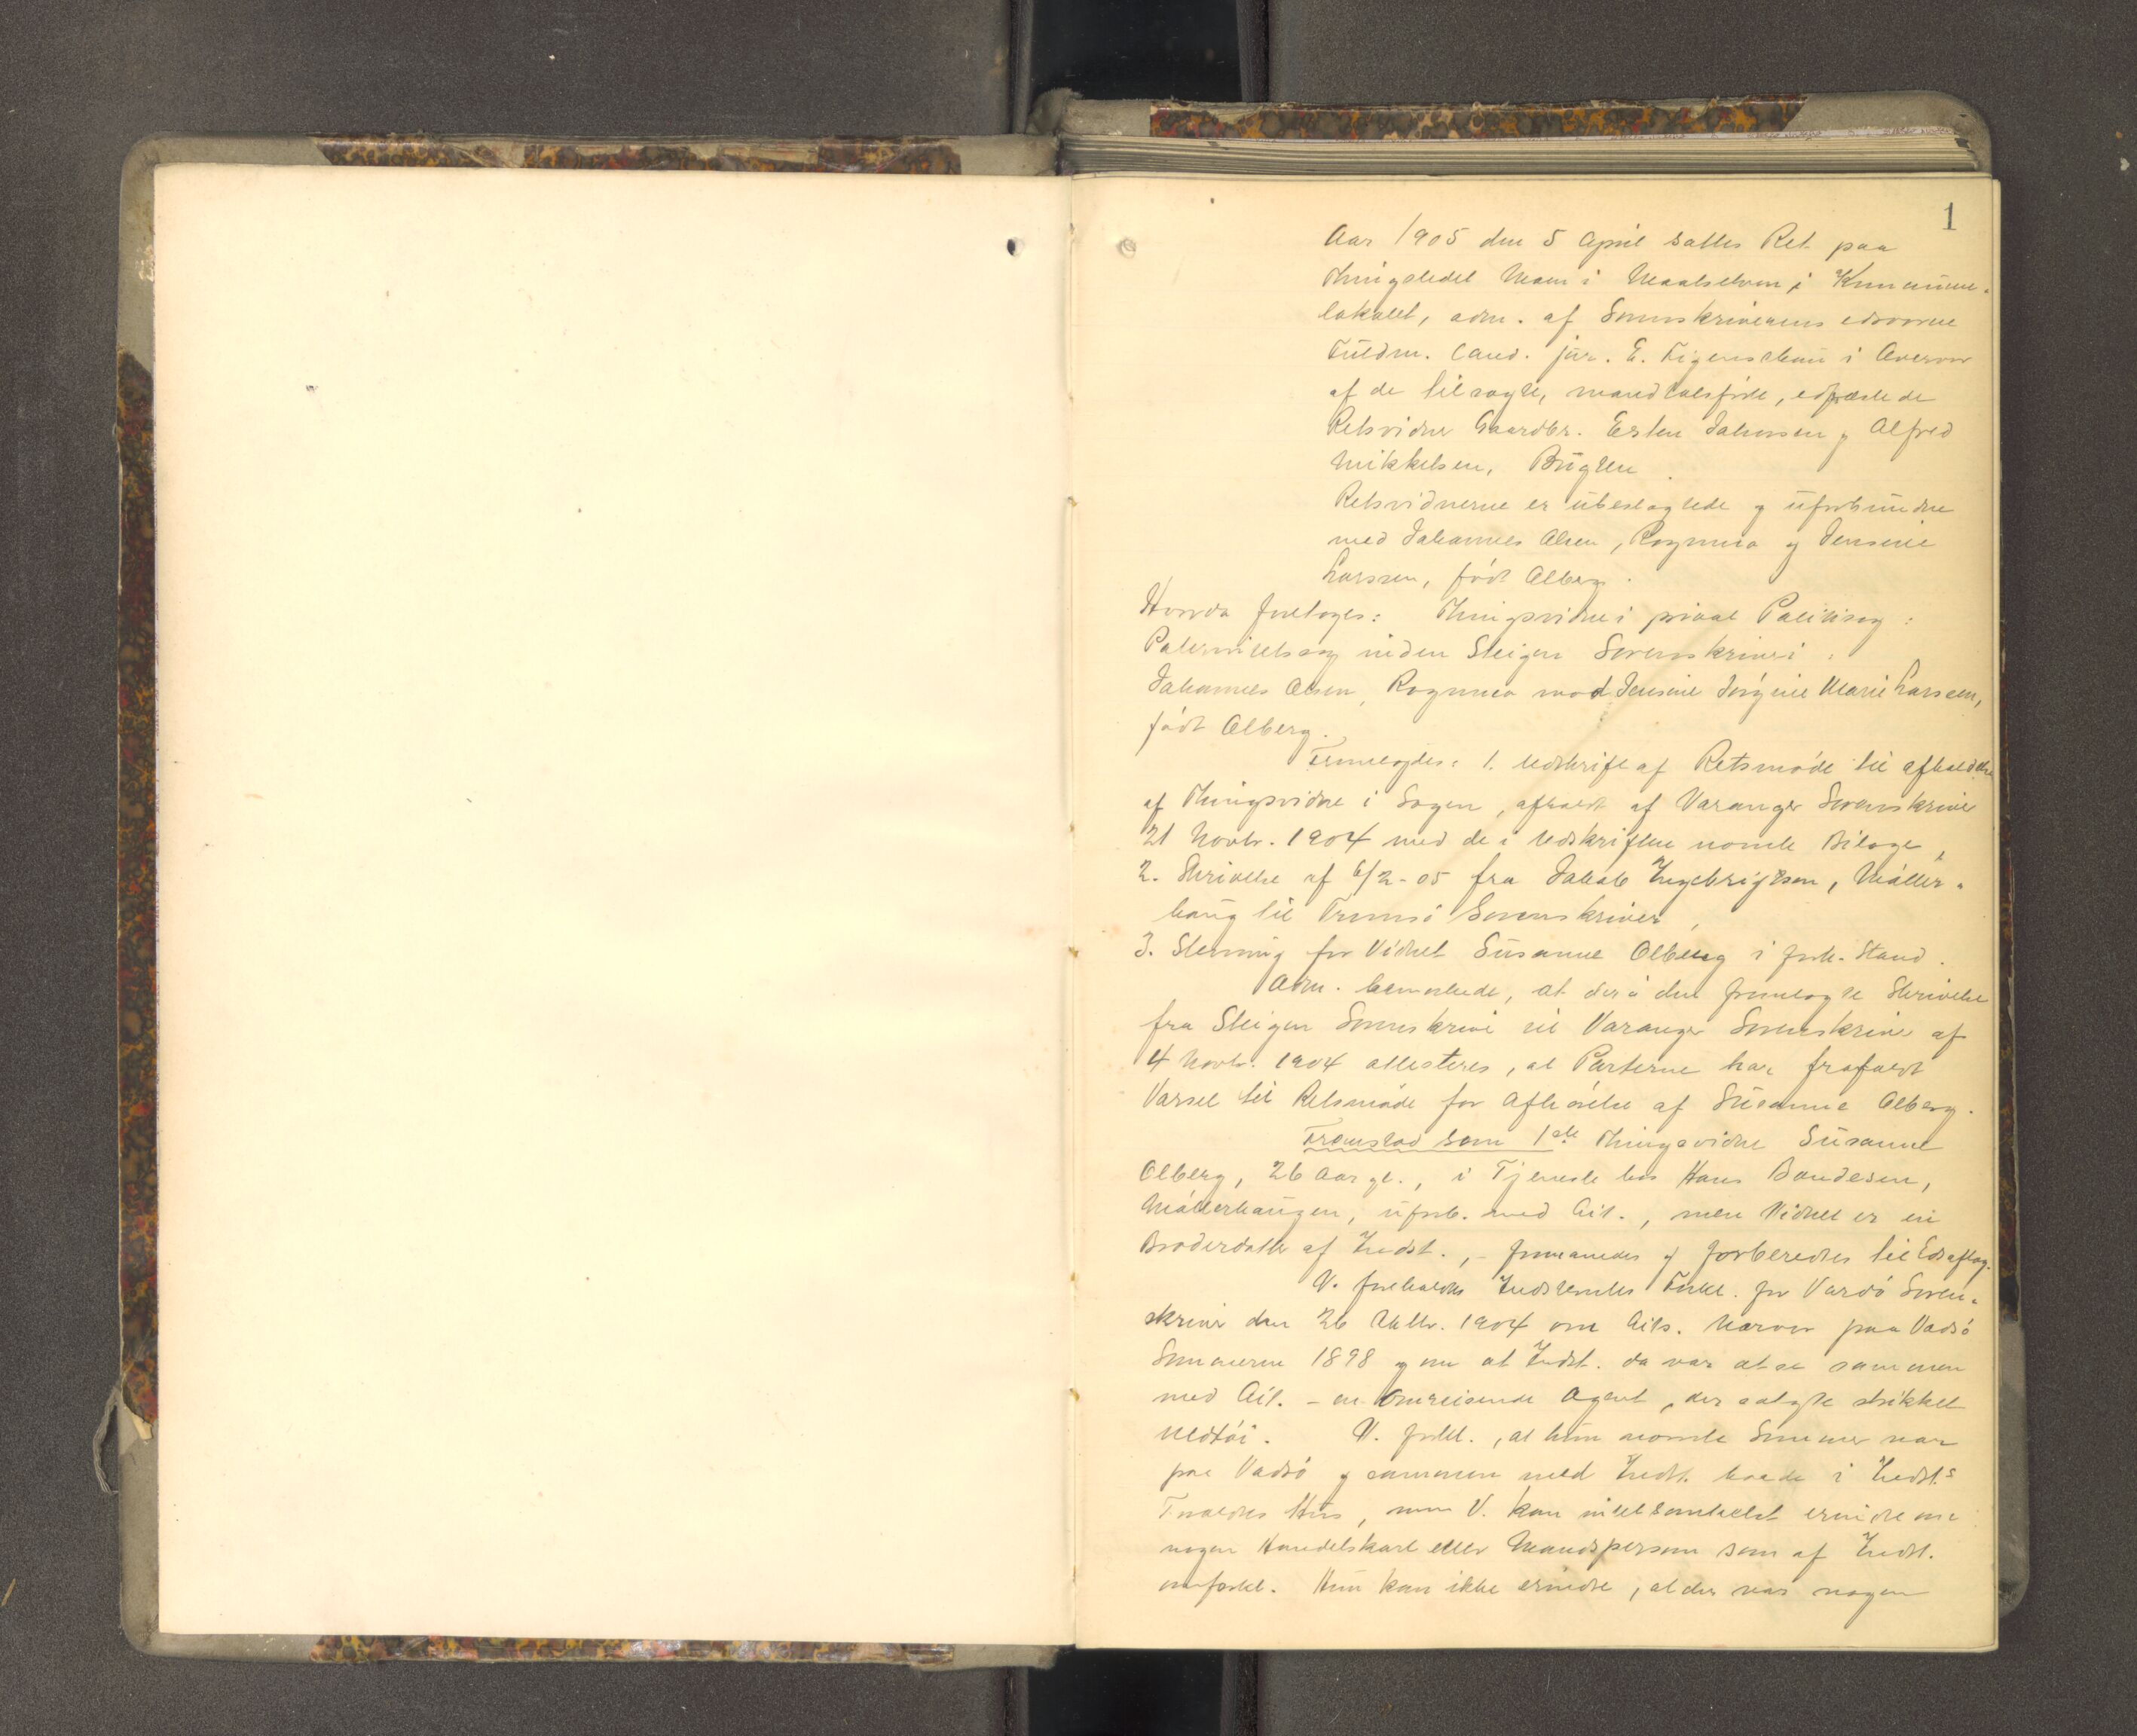 1
Aar 1905 den 5 April sattes Ret paa
Thingstedet Moen i Maalselven i Kommune-
lokalet, adm. af Sorenskriverens edsvorne
Fuldm. Cand. jur. E. Figenschau i Overvær
af de tilsagte, mandtalsførte, edfæstede
Retsvidner Gaardbr. Esten Johnsen og Alfred
Mikkelsen,
Retsvidnerne er ubeslægtede og uforbundne
med Johannes Olsen, Rognmo og Jensine
Larssen, født Olberg.
Hvorda foretoges: Thingsvidne i privat Politisag:
Paternitetssag inden Steigen Sorenskriveri:
Johannes Olsen, Rognmo mod Jensine Jørgine Marie Larssen,
født Olberg.
Fremlagdes: 1. Udskrift af Retsmøde til afholdelse
af Thingsvidne i Sagen, afholdt af Varanger Sorenskriver
21 Novbr. 1904 med de i Udskriften nævnte Bilage,
2. Skrivelse af 6/2-05 fra Jakob Ingebrigtsen, Møller-
haug til Tromsø Sorenskriver,
3. Stevning for Vidnet Susanne Olberg i fork. Stand.
Adm. bemærkede, at der i den fremlagte Skrivelse
fra Steigen Sorenskriver til Varanger Sorenskriver af
4 Novbr. 1904 attesteres, at Parterne har frafaldt
Varsel til Retsmøde for Afhørelse af Susanne Olberg.
Fremstod som 1ste Thingsvidne Susanne
Olberg, 26 Aar gl., i Tjeneste hos Hans Bendesen,
Møllerhaugen, uforb. med Cit., men Vidnet er en
Broderdatter af Indst., - formanedes og forberedtes til Edsaflæg.
V. foreholdtes Indstevntes Forkl. for Vardø Soren-
skriver den 26 Oktbr. 1904 om Cits. Nærvær paa Vadsø
Sommeren 1898 og om at Indst. da var at se sammen
med Cit. - en omreisende Agent, der solgte strikket
Uldtøi. V. forkl., at hun nævnte Sommer var
paa Vadsø og sammen med Indst. baade i Indst.s
Forældres Hus, men V. kan intetsomhelst erindre om
nogen Handelskarl eller Mandsperson som af Indst.
omforkl. Hun kan ikke erindre, at der var nogen